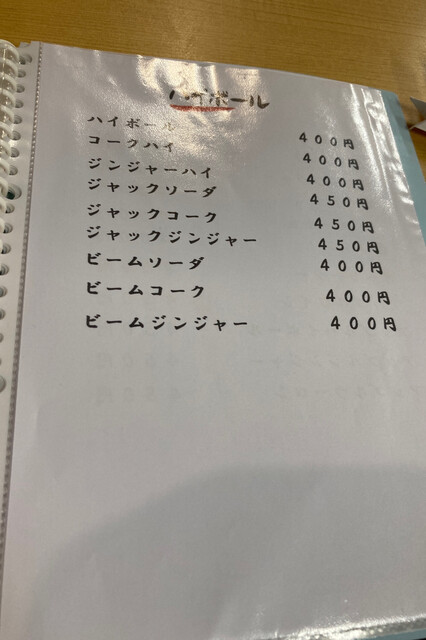 ハイボール
ハイボール 400円
コークハイ 400円
ジンジャーハイ 400円
ジャックソーダ 450円
ジャックコーク 450円
ジャックジンジャー 450円
ビームソーダ 400円
ビームコーク 400円
ビームジンジャー 400円